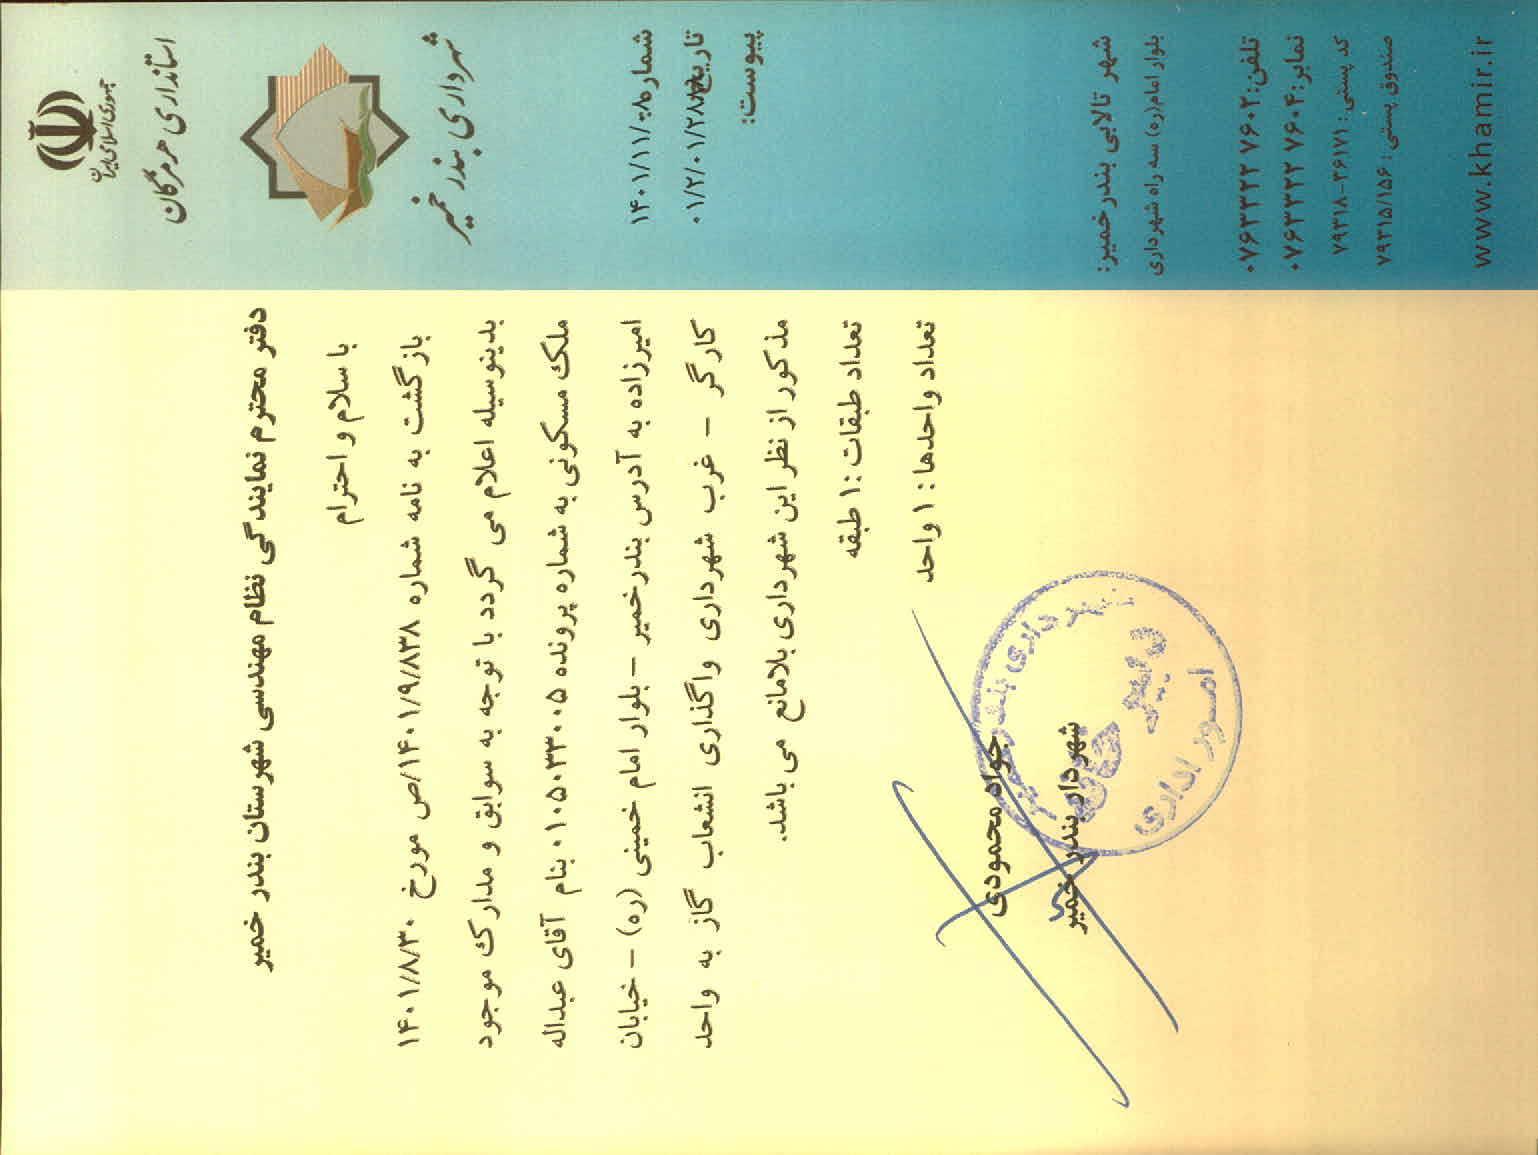 جمهوری اسلامی ایران
استانداری هرمزگان
شهرداری بندر خمیر
شماره:
۱۴۰۱/۱۱/
تاریخ:
۰۱/۲/۰۱/۲۸۸
پیوست:
شهر تالابی بندر خمیر:
بلوار امام(ره) سه راه شهرداری
تلفن: ۰۷۶۳۳۲۲۷۶۰۲
نمابر: ۰۷۶۳۳۲۲۷۶۰۴
کد پستی: ۷۹۳۱۸-۳۶۱۷۱
صندوق پستی: ۷۹۳۱۵/۱۵۶
www.khamir.ir
دفتر محترم نمایندگی نظام مهندسی شهرستان بندر خمیر
با سلام و احترام
بازگشت به نامه شماره ۱۴۰۱/۹/۸۳۸/ص مورخ ۱۴۰۱/۸/۳۰
بدینوسیله اعلام می گردد با توجه به سوابق و مدارک موجود
ملک مسکونی به شماره پرونده ۰۱۰۵۰۳۳۰۰۵ بنام آقای عبداله
امیرزاده به آدرس بندرخمیر – بلوار امام خمینی (ره) – خیابان
کارگر – غرب شهرداری واگذاری انشعاب گاز به واحد
مذکور از نظر این شهرداری بلامانع می باشد.
تعداد طبقات : ۱ طبقه
تعداد واحدها : ۱ واحد
جواد محمودی
شهردار بندر خمیر
شهرداری بندر خمیر
دبیر خانه
امور اداری